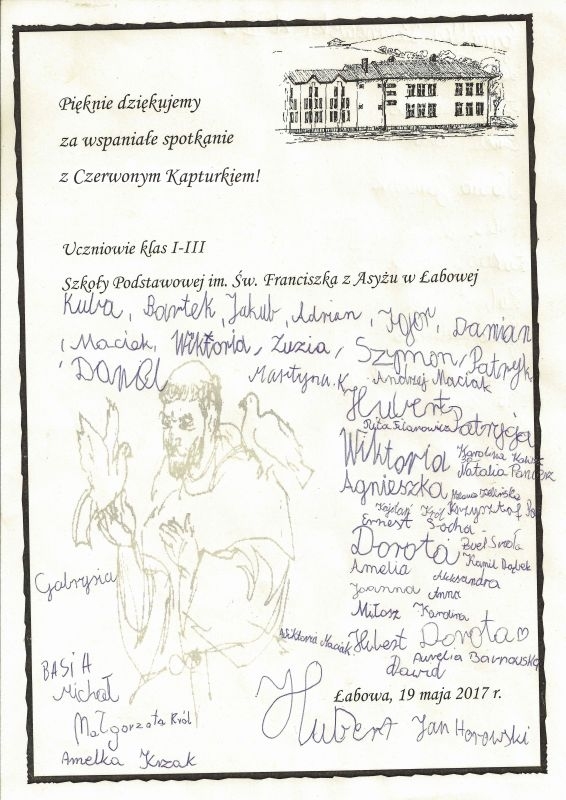 Pięknie dziękujemy
za wspaniałe spotkanie
z Czerwonym Kapturkiem!
Uczniowie klas I-III
Szkoły Podstawowej im. Św. Franciszka z Asyżu w Łabowej
Kuba, Bartek, Jakub, Adrian, Igor, Damian
Maciek, Wiktoria, Zuzia, Szymon, Patryk
Martyna.K Andrzej Maciak
Hubert
Patrycja
Wiktoria Karolina
Natalia
Agnieszka
Król Krzysztof
Ernest Socha
Dorota
Kamil Dąbek
Amelia Aleksandra
Gabrysia
Joanna Anna
Miłosz Karolina
Wiktoria Maciak Hubert Dorota
Aurelia
Dawid
BASIA
Michał
Łabowa, 19 maja 2017 r.
Małgorzata Król
Hubert Jan Horowski
Amelka Krzak